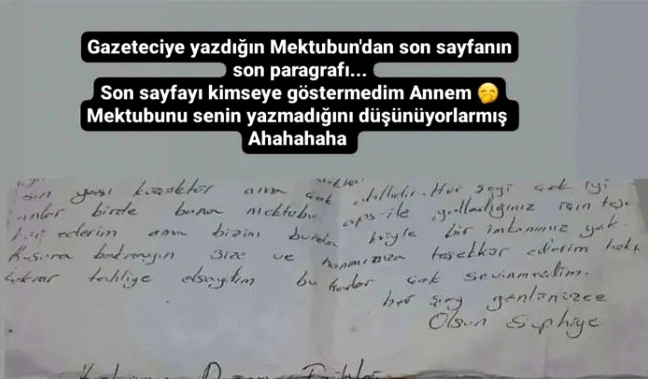 Gazeteciye yazdığın Mektubun'dan son sayfanın
son paragrafı...
Son sayfayı kimseye göstermedim Annem 🤭
Mektubunu senin yazmadığını düşünüyorlarmış
Ahahahaha
son yası küçüktür ama çok akıllıdır. Her şeyi çok iyi
anlar birde bana mektubu aps ile yolladığınız için
ederim ama bizim burda böyle bir imkanımız yok.
Kusura bakmayın size ve hanımınıza teşekkür ederim
tekrar tahliye olsaydım bu kadar çok sevinmezdim.
her şey gönlünüzce
Olsun Suphiye